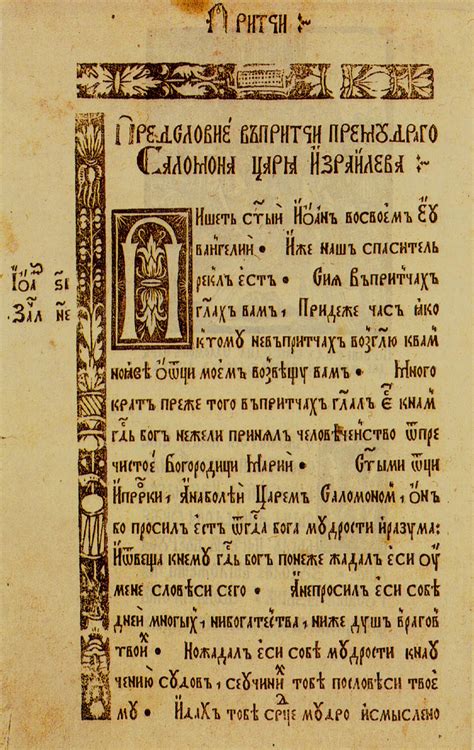 Притчи :~
Предсловиє въпритчи премꙋдраго
Саломона царѧ Израилева :~
Пишеть ст҃ый Іѡан восвоемъ єѵ
вангелии · Иже наш спаситель
реклъ єсть · Сиꙗ Въпритчах
гл҃ахъ вамъ, Придеже час ꙗко
ктомꙋ невъпритчах возг҃лю квам
Іѡа ѕ҃і
Зач҃л н҃е
номве ѡѿци моем возвѣщꙋ вамъ · Много
кратъ преже того въпритчах гл҃алъ є҃ кнам
гд҃ь богъ нежели принялъ человѣченство ѿпре
чистоє Богородици Марии · Ст҃ыми ѿци
Ипрⷪрки, Анаболѣй Царем Саломоном, ѡнъ
бо просилъ єсть ѿгд҃а бога мꙋдрости иразума:
Иѿвеща кнемꙋ гд҃ь богъ понеже жадалъ єси ꙋ
мене словѣси сего · Анепросилъ єси собѣ
дней многых, нибогатества, ниже дꙋшъ врагов
твоих · Ножадалъ єси собѣ мꙋдрости кнаꙋ
чению сꙋдов, сеꙋчинихъ тобѣ пословѣси твоє
мꙋ · Идахъ тобѣ срдце мꙋдро исмыслено